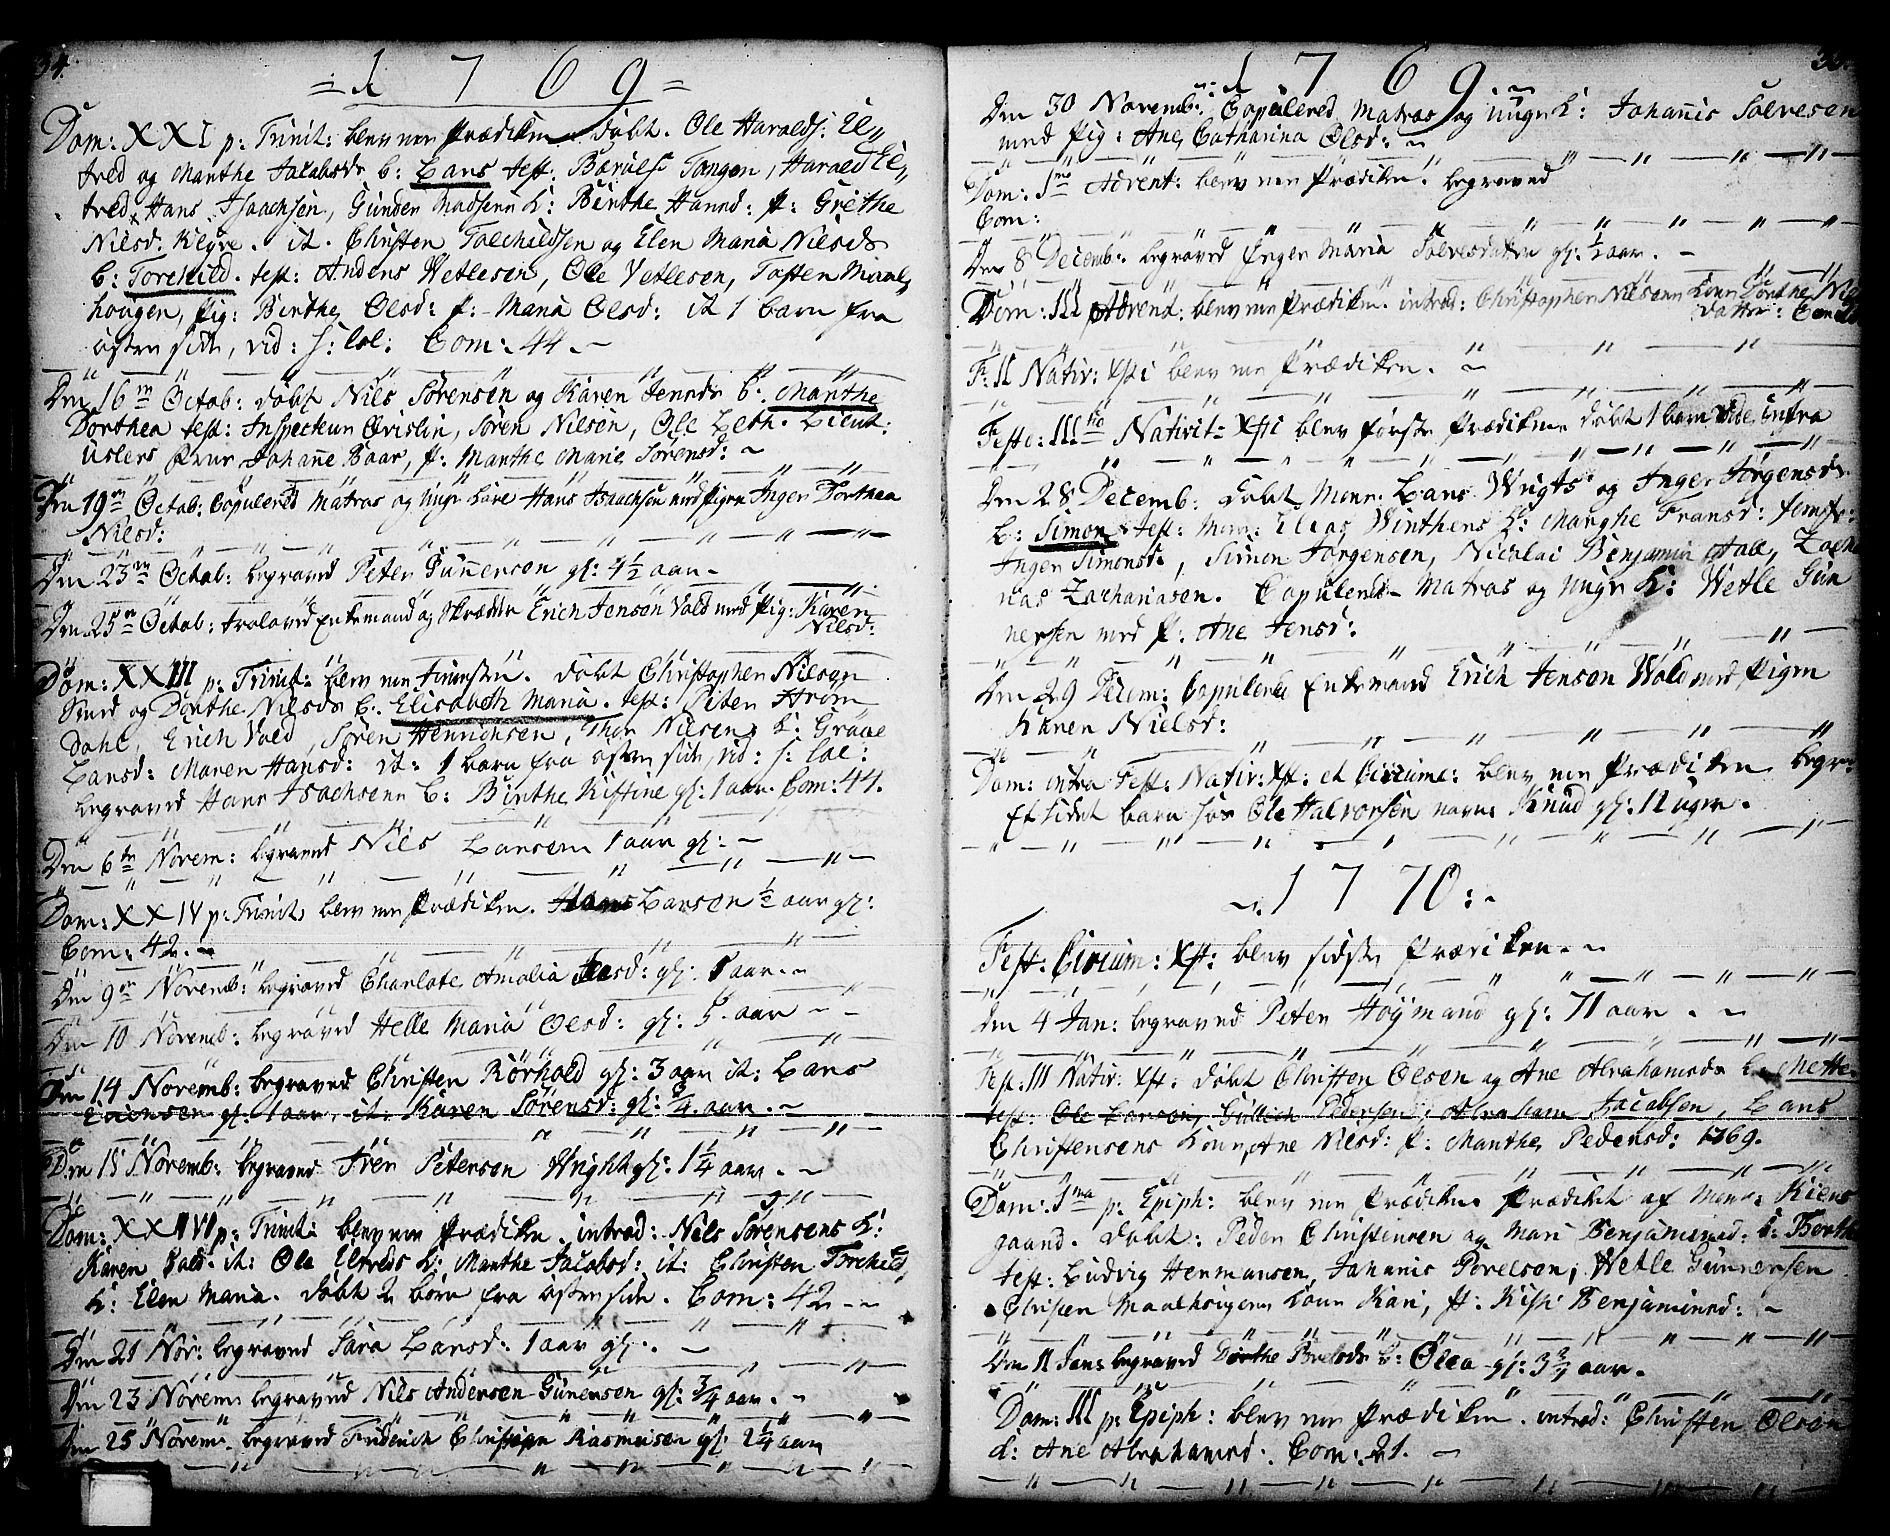 34.
= 1 7 6 9 =
Dom: XXI p: Trinit: blev non Prædiken døbt. Ole Haralds: El„
fred og Marthe Jacobsdr b: Lars test. Barül Tangen, Harald El„
fred, Hans Isaachsen, Günder Madsens k: Birthe Hansd: p: Grethe
Nilsd: Klÿve. it. Christen Torchildsen og Elen Maria Nilsdr
b: Torchild. test: Anders Wetlesen, Ole Vetlesen, Tosten Maal„
hougen, Pig: Birthe Olsd: p: Maria Olsd: it 1 barn fra
østre side, vid: s: lol: Com: 44. —
Den 16 Octob: døbt Nils Sørensen og Karen Jensdr b: Marthe
Dorthea test: Inspecteur Crislin, Søren Nilsen, Ole Leth. Lieut:
Uslers Frue Johane Baar, p: Marthe Marie Sørensd: ~
Den 19 Octob: Copulered Matros og Ungkarl Hans Isaachsen med Pigen Inger Dorthea
Nilsd:
Den 23 Octob: begraved Peter Gunnerson gl: 4½ aar ~
Den 25 Octob: trolovid Enkemand og Skrædder Erich Jensen Vold med Pig: Karen
Nilsd:
Dom: XXIII p: Trinit: blev non tienesten. Døbt Christopher Nilsen
Smed og Dorthe Nilsdr b: Elisabeth Maria. test: Peter Strøm
Dahl, Erich Vold, Søren Henrichsen, Thor Nilsens k: Groue
Larsd: Maren Hansd: it: 1 barn fra østre side, vid: s: lol:
begraved Hans Isachsens b: Birthe Kistine gl: 1 aar. Com: 44.
Den 6 Novem: begraved Nils Larsen 1 aar gl: ~
Dom: XXIV p: Trinit: blev non Prædiken. Hans Larson ½ aar gl:
Com: 42. ~
Den 9 Novemb: begraved Charlote Amalia gl: 1 aar. ~
Den 10 Novemb: begraved Helle Maria Olsd: gl: 5. aar ~
Den 14 Novemb: begraved Christen Rørhold gl: 3 aar it: Lars
gl: 1 aar, it: Karen Sørensd: gl: ¾. aar. ~
Den 15 Novemb: begraved Iver Peterson Wright gl: 1¼ aar. ~
Dom: p: Trinit: blev non Prædiken. introd: Nils Sørensens k:
Karen it: Ole Elfreds k: Marthe Jacobsd: it: Christen Torchild„
k: Elen Maria. døbt 2 børn fra østre side. Com: 42 ~
Den 21 Nov: begraved Sara Larsd: 1 aar gl: ~
Den 23 Novem: begraved Nils Andersen Gunersen gl: ¾ aar. ~
Den 25 Novem: begraved Friderich Christian Rasmusen gl: 2¼ aar
1 7 6 9. ~
Den 30 Novemb: Copulered Matros og ungk: Johannis Solvesen
med Pig: Ane Catharina Olsd: ~
Dom: 1ma Advent: blev non Prædiken. begraved
Com:
Den 8 Decemb: begraved Inger Maria Solvesdatter gl: ½ aar. ~
Dom: III Advent: blev non Prædiken. introd: Christopher Nilsens kone Dorthe Nils
datter:
F: II Nativ: Xsti blev non Prædiken. ~
Festo: III Nativit: Xsti blev første Prædiken døbt 1 barn vide infra
Den 28 Decemb: døbt Mons: Lars Wrigts og Inger Jørgensdr
b: Simon test: Mons: Elias Winthers k: Marghe Fransd: Jomfr:
Inger Simonsdr, Simon Jørgensen, Nicolai Benjamin Aall, Zacha
rias Zachariasen. Copulered Matros og Ungk: Wetle Gün
nersen med p: Ane Jensd:
Den 29 Decem: Copulered Enkemand Erich Jenson Wold med Pigen
Karen Nielsd:
Dom: intra Fest: Nativ: Xst: et Circumc: blev non Prædiken begra
Et lidet barn hos Ole Halvorsen navn: Knud gl: 12 uger.
~. 1 7 70: ~
Fest: Circum: Xst: blev sidste Prædiken. ~
Den 4 Jan: begraved Peter Høÿmand gl: 71 aar. ~
Fest: III Nativ: Xst: døbt Christen Olsen og Ane Abrahamsdr b: Mette
test: Ole Larsen, Gullich Pedersen, Abraham Jacobsen, Lars
Christensens kone, Ane Nilsd: p: Marthe Pedersd: 1769.
Dom: 1ma p: Epiph: blev non Prædiken Prædiket af Mons: Kiens
gaard. døbt: Peder Christensen og Mari Benjaminsd: b: Berthe
test: Ludvig Hermansen, Johanis Porelson, Wetle Gunnersen
Christen Maalhougens kone Kari, p: Kisti Benjaminsd: ~
Den 11 Jan: begraved Dorthe b: Olea gl: 3¾ aar.
Dom: III p: Epiph: blev non Prædiken. introd: Christen Olson
k: Ane Abrahamsd: Com: 21. ~